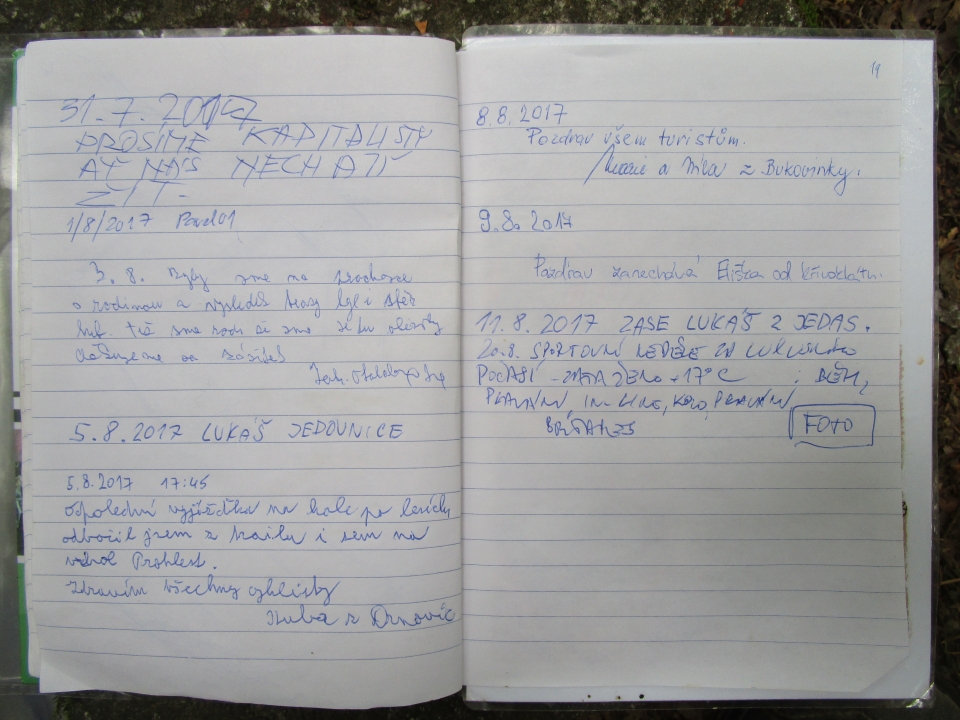 31.7.2017
PROSÍME KAPITALISTY
AŤ NÁS NECHAJÍ
ŽÍT.
1/8/2017 Pavel01
3. 8. Byly sme na prochazce
s rodinou a
sme se
děkujeme za zážitek
5.8.2017 LUKÁŠ JEDOVNICE
5.8.2017 17:45
Odpolední vyjížďka na kole po lesích,
odbočil jsem z trailu i sem na
vrchol Prohlest.
Zdravím všechny cyklisty
Kuba z Drnovic
19
8.8.2017
Pozdrav všem turistům.
Marie a Míla z Bukovinky.
9.8.2017
Pozdrav zanechává Eliška od Křivoklátu.
11.8.2017 ZASE LUKÁŠ Z JEDAS.
20.8. SPORTOVNÍ NEDĚLE
POČASÍ - ZATAŽENO +17°C : BĚH,
PLAVÁNÍ, IN-LINE, KOLO, PLAVÁNÍ
FOTO